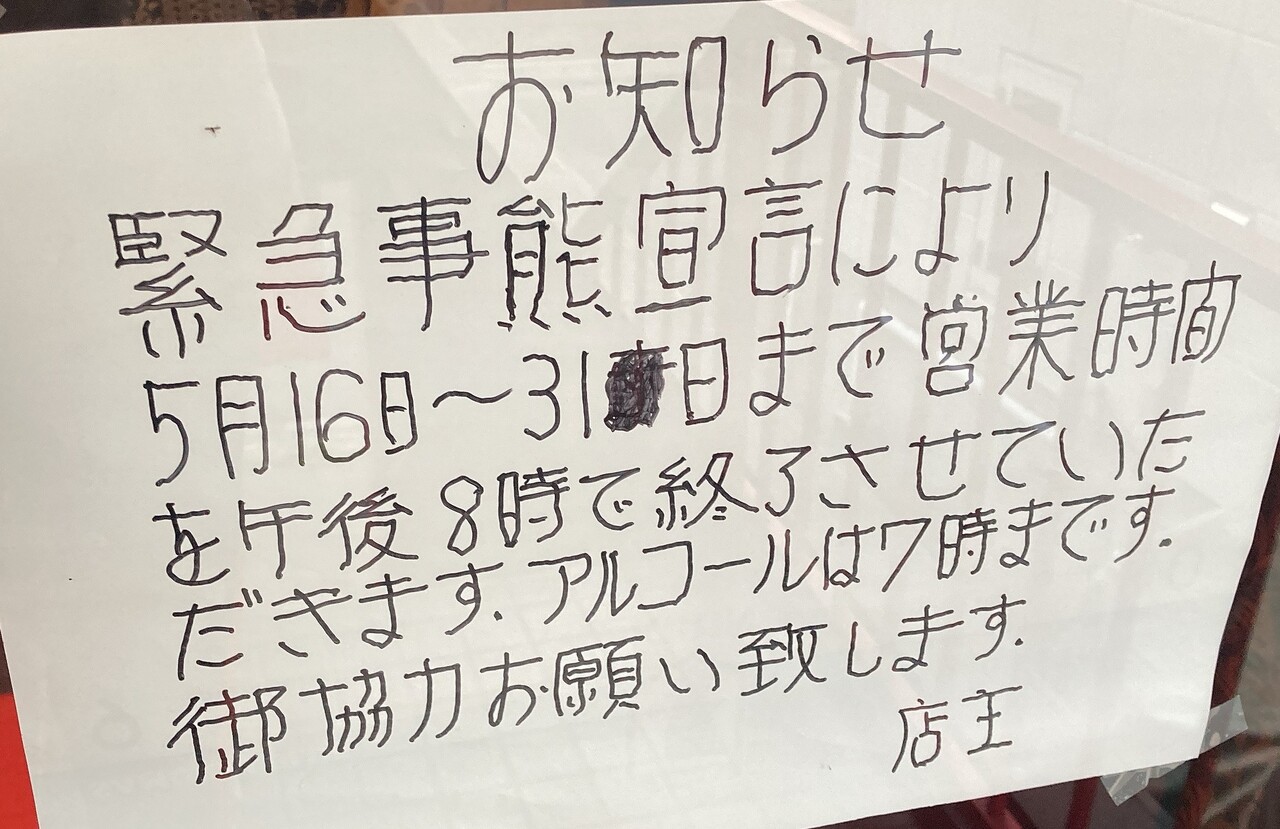 お知らせ
緊急事能宣言により
5月16日～31日まで営業時間
を午後8時で終了させていた
だきます.アルコールは7時までです.
御協力お願い致します.
店王